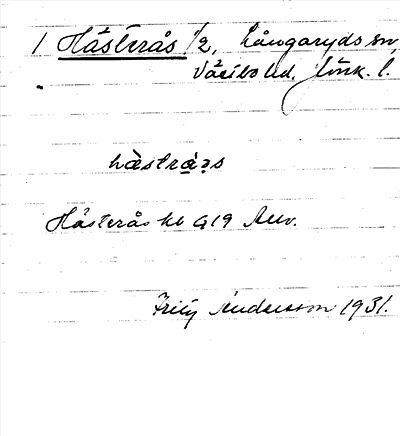 1 Hästerås 1/2, Långaryds sn,
Västbo hd, Jönk. l.
hàstrɑ̀:s
Hästerås hl G19 Auv.
Fritz Andersson 1931.